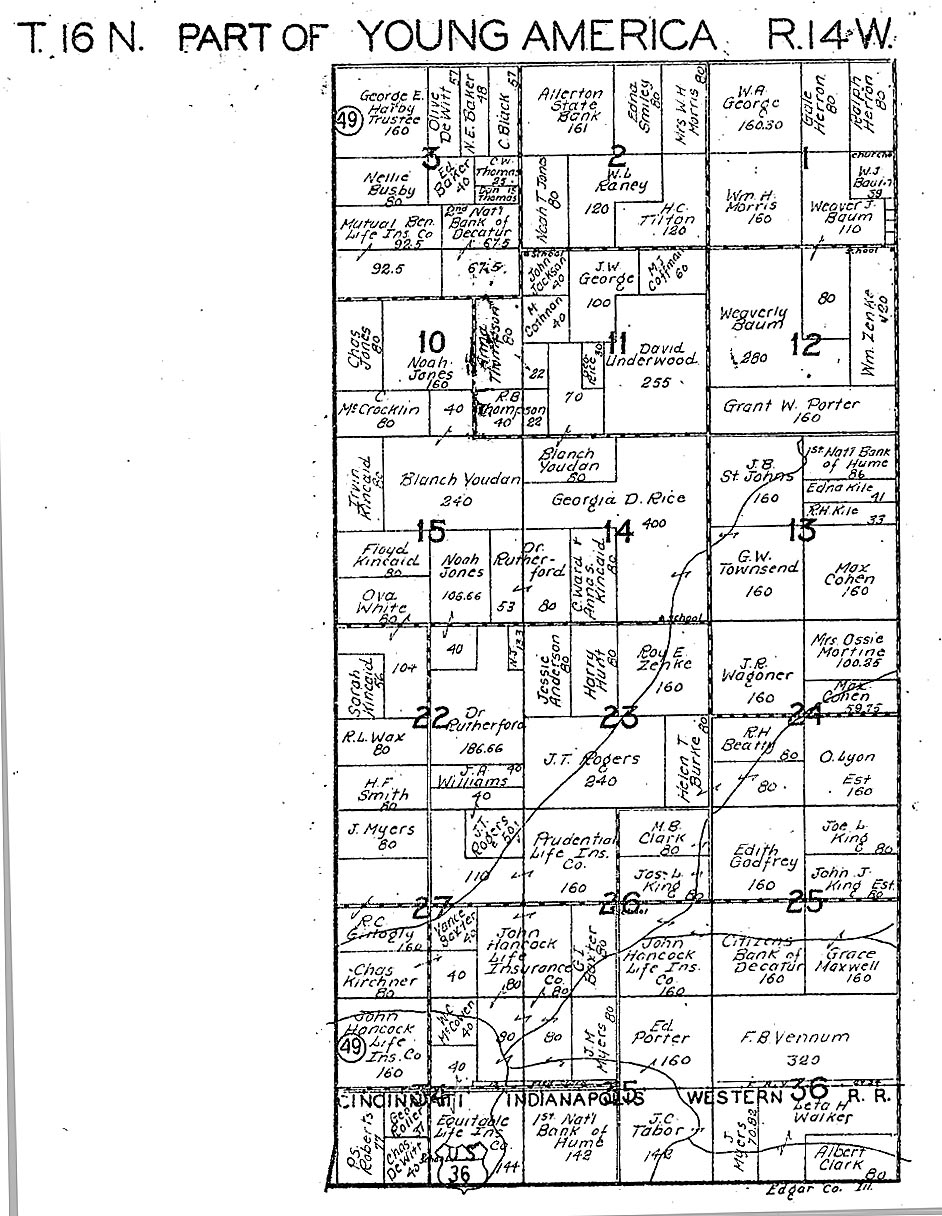 T. 16 N. PART OF YOUNG AMERICA R. 14 W.
49
George E.
Harby
Trustee
160
Olive
DeWitt
57
N.E. Baker
48
C. Black 57
Allerton
State
Bank
161
Edna
Smiley
80
Mrs W H
Morris 80
W.A.
George
160.30
Gale
Herron
80
Ralph
Herron
80
3
2
1
Nellie
Busby
80
Ed
Baker
40
C.W.
Thomas
25
Thomas
Noah T Jones
80
W.L
Raney
120
H.C.
Tilton
120
Wm. H.
Morris
160
church
W.J.
Baum
39
Weaver J.
Baum
110
Mutual Ben.
Life Ins. Co
92.5
2nd Nat'l
Bank of
Decatur
67.5
92.5
67.5
School
John
Jackson
40
J.W.
George
100
M.J.
Coffman
60
School
M
Cothron
40
Weaverly
Baum
280
80
Wm. Zenke
120
12
Chas
Jones
80
10
Noah
Jones
160
Anna
Thompson
80
22
11
David
Underwood
255
70
C.
McCrocklin
80
40
R.B
Thompson
40
22
Grant W. Porter
160
Irvin
Kincaid
80
Blanch Youdan
240
Blanch
Youdan
80
Georgia D. Rice
400
J.B.
St. Johns
160
1st Nat'l Bank
of Hume
86
Edna Kile
41
R.H. Kile
33
15
14
13
Floyd
Kincaid
80
Ova
White
80
Noah
Jones
106.66
Dr.
Rutherford
53
80
C. Ward &
Anna S.
Kincaid
80
School
G.W.
Townsend
160
Max
Cohen
160
Sarah
Kincaid
56
104
40
N.J. 13.3
Jessie
Anderson
80
Harry
Hunt
80
Roy E.
Zenke
160
J.R.
Wagoner
160
Mrs. Ossie
Martine
100.25
Max
Cohen
59.75
22
23
24
R.L. Wax
80
Dr
Rutherford
186.66
J.T. Rogers
240
Helen T
Burke 80
R.H
Beatty
80
80
O. Lyon
Est
160
H.F
Smith
80
J.A
Williams
40
40
J. Myers
80
J.T.
Rogers
50.1
110
Prudential
Life Ins.
Co.
160
M.B.
Clark
80
Jos. L
King
80
Edith
Godfrey
160
Joe L.
King
80
John J.
King Est.
80
27
26
25
R.C
Gillogly
160
Vance
Baxter
40
John
Hancock
Life
Insurance
Co.
80
80
G.I.
Baxter
80
John
Hancock
Life Ins.
Co
160
Citizens
Bank of
Decatur
160
Grace
Maxwell
160
Chas
Kirchner
80
40
John
Hancock
Life
Ins. Co
160
49
W.C.
McCowen
40
40
80
80
J.M
Myers 80
Ed.
Porter
160
F.B. Vennum
320
34
35
36
CINCINNATI INDIANAPOLIS WESTERN R. R.
P.S.
Roberts
77
37
Chas.
DeWitt
40
Equitable
Life Ins
Co.
144
1st Nat'l
Bank of
Hume
142
J.C
Tabor
142
J
Myers
70.82
Leta H
Walker
Albert
Clark
80
U S
36
Edgar Co. Ill.